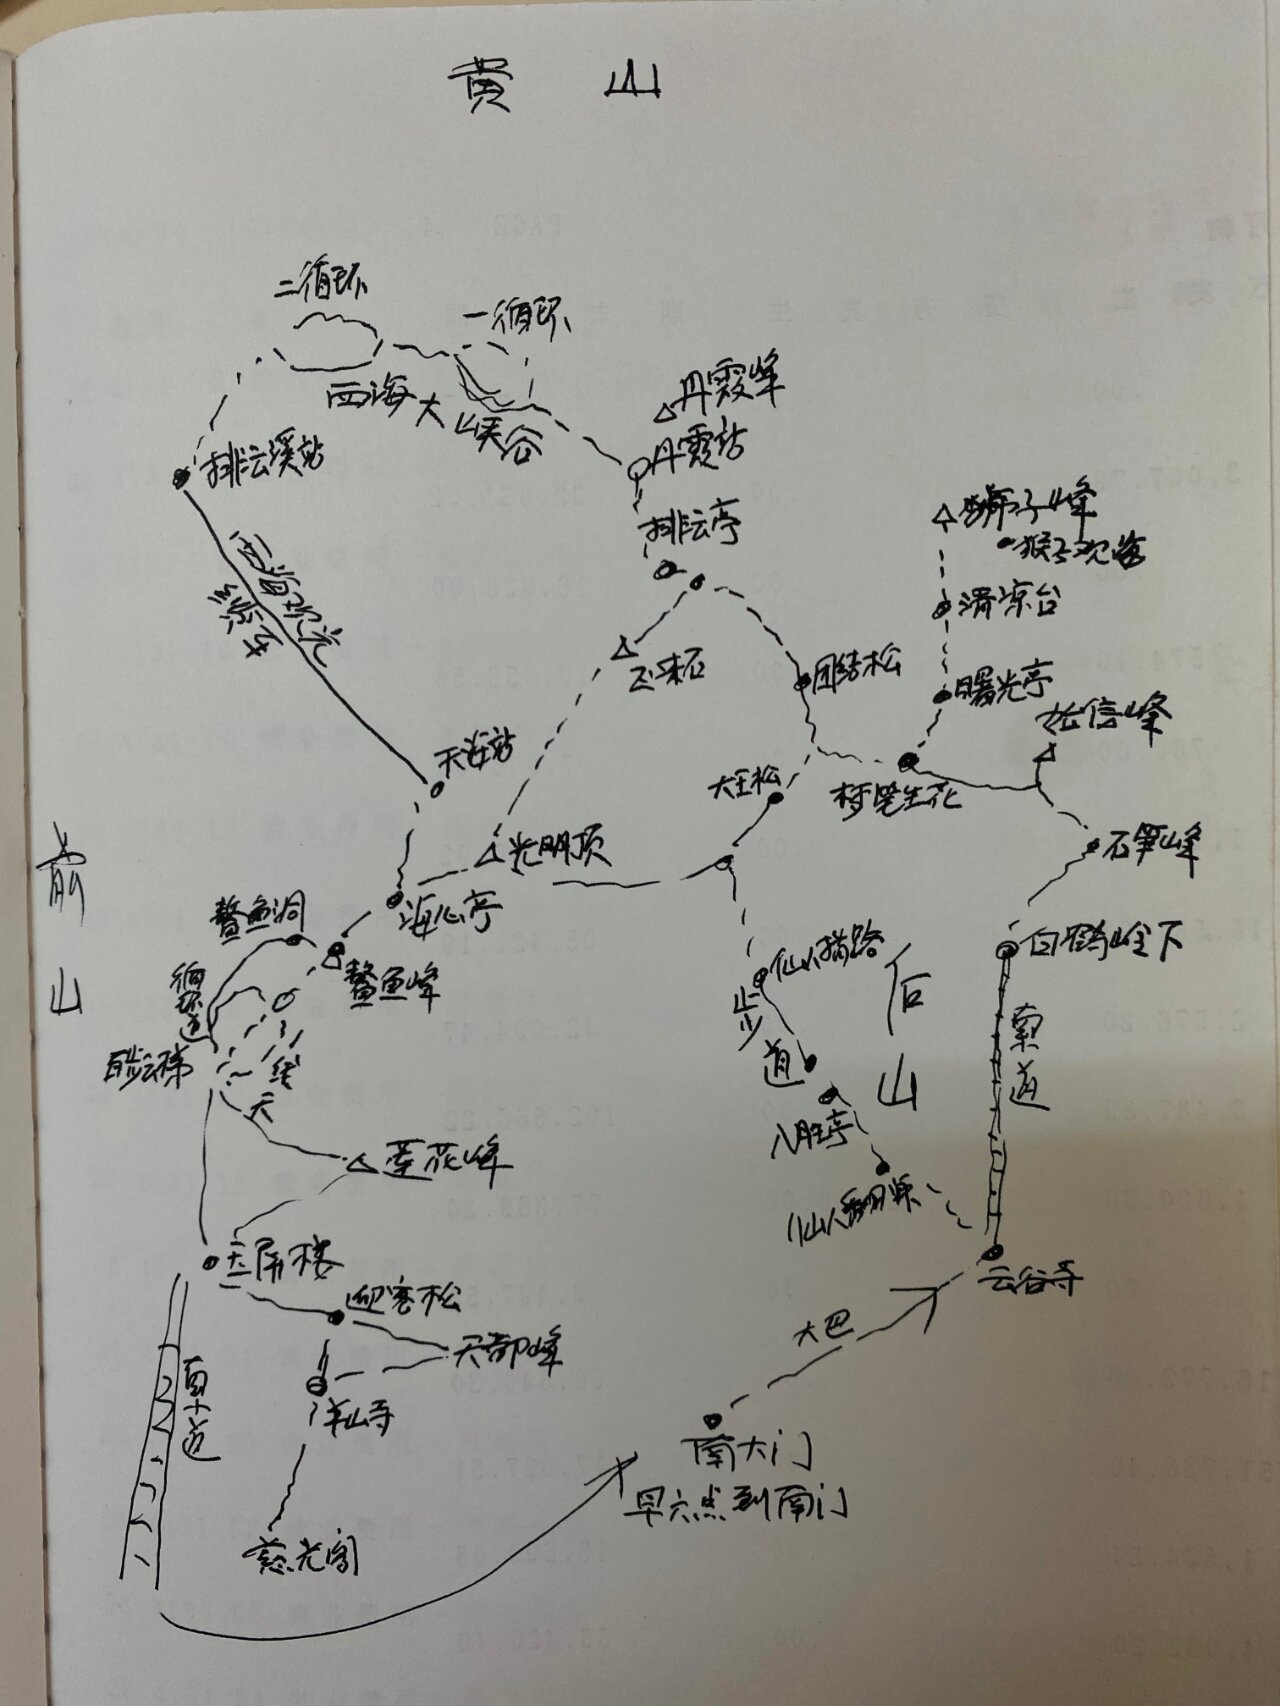 黄 山
二循环
一循环
西海大峡谷
丹霞峰
丹霞站
排云溪站
排云亭
狮子峰
猴子观海
清凉台
西海观光
缆车
飞来石
团结松
曙光亭
始信峰
天海站
大王松
梦笔生花
石笋峰
光明顶
海心亭
前山
鳌鱼洞
鳌鱼峰
循环道
百步云梯
一线天
仙人指路
步道
后山
白鹅岭下
索道
八胜亭
仙人翻桌
莲花峰
玉屏楼
迎客松
天都峰
云谷寺
大巴
索道
半山寺
南大门
早六点到南门
慈光阁